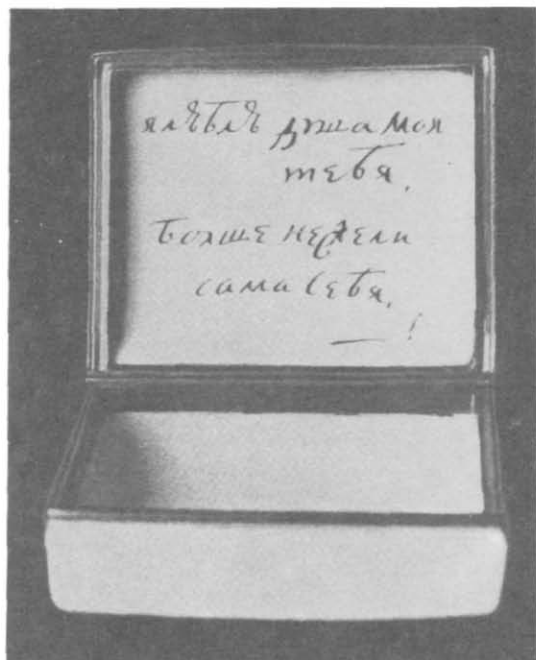 я лѣблѣ дꙋша моя
тебя.
болше нежели
сама себя.